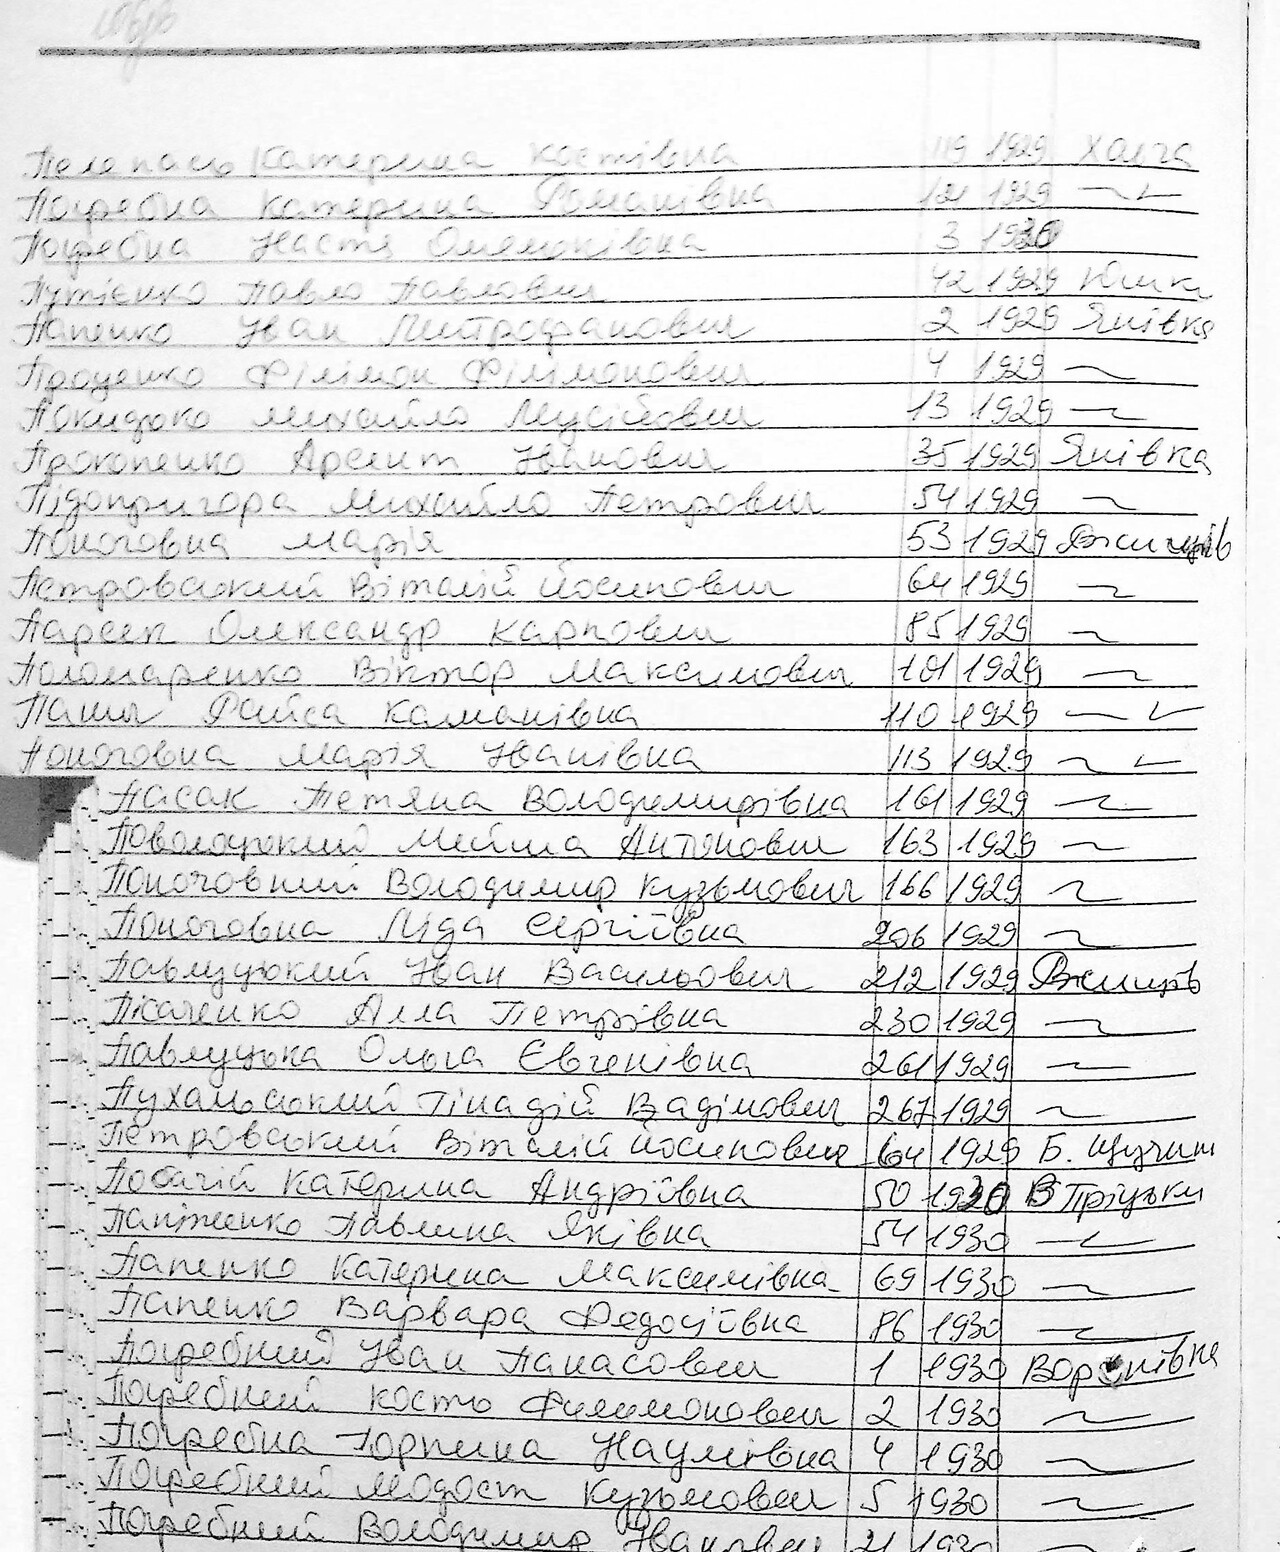 Пелепась Катерина Костівна 119 1929 Халча
Погребна Катерина Романівна 121 1929 —〃—
Погребна Настя 3 1930
Путієнко Павло Павлович 42 1929 Юшки
Папенко Іван Митрофанович 2 1929 Янівка
Проценко Філімон Філімонович 4 1929 —〃—
Михайло Мусійович 13 1929 —〃—
Прокопенко Арсент Іванович 35 1929 Янівка
Підопригора Михайло Петрович 54 1929 —〃—
Поноговна Марія 53 1929 Ржищів
Петровський Віталій Йосипович 64 1929 —〃—
Парсек Олександр Карпович 85 1929 —〃—
Пономаренко Віктор Максимович 101 1929 —〃—
Раїса Калманівна 110 1929 —〃—
Поноговна Марія Іванівна 113 1929 —〃—
Пасак Тетяна Володимирівна 161 1929 —〃—
Поволоцький Антонович 163 1929 —〃—
Поночовний Володимир Кузьмович 166 1929 —〃—
Поноговна Ліда Сергіївна 206 1929 —〃—
Павлуцький Іван Васильович 212 1929 Ржищів
Пісаченко Алла Петрівна 230 1929 —〃—
Павлуцька Ольга Євгенівна 261 1929 —〃—
Пухальський Гінадій Вадімович 267 1929 —〃—
Петровський Віталій Йосипович 64 1929 Б. Щучин
Побачій Катерина Андріївна 50 1930 В Пріцьки
Павлина Яківна 54 1930 —〃—
Папенко Катерина Максимівна 69 1930 —〃—
Папенко Варвара Федосіївна 86 1930 —〃—
Погребний Іван Панасович 1 1930 Воронівка
Погребний Кость Филимонович 2 1930 —〃—
Погребна Горпина Наумівна 4 1930 —〃—
Погребний Модост Кузьмович 5 1930 —〃—
Погребний Володимир Іванович 21 1930 —〃—